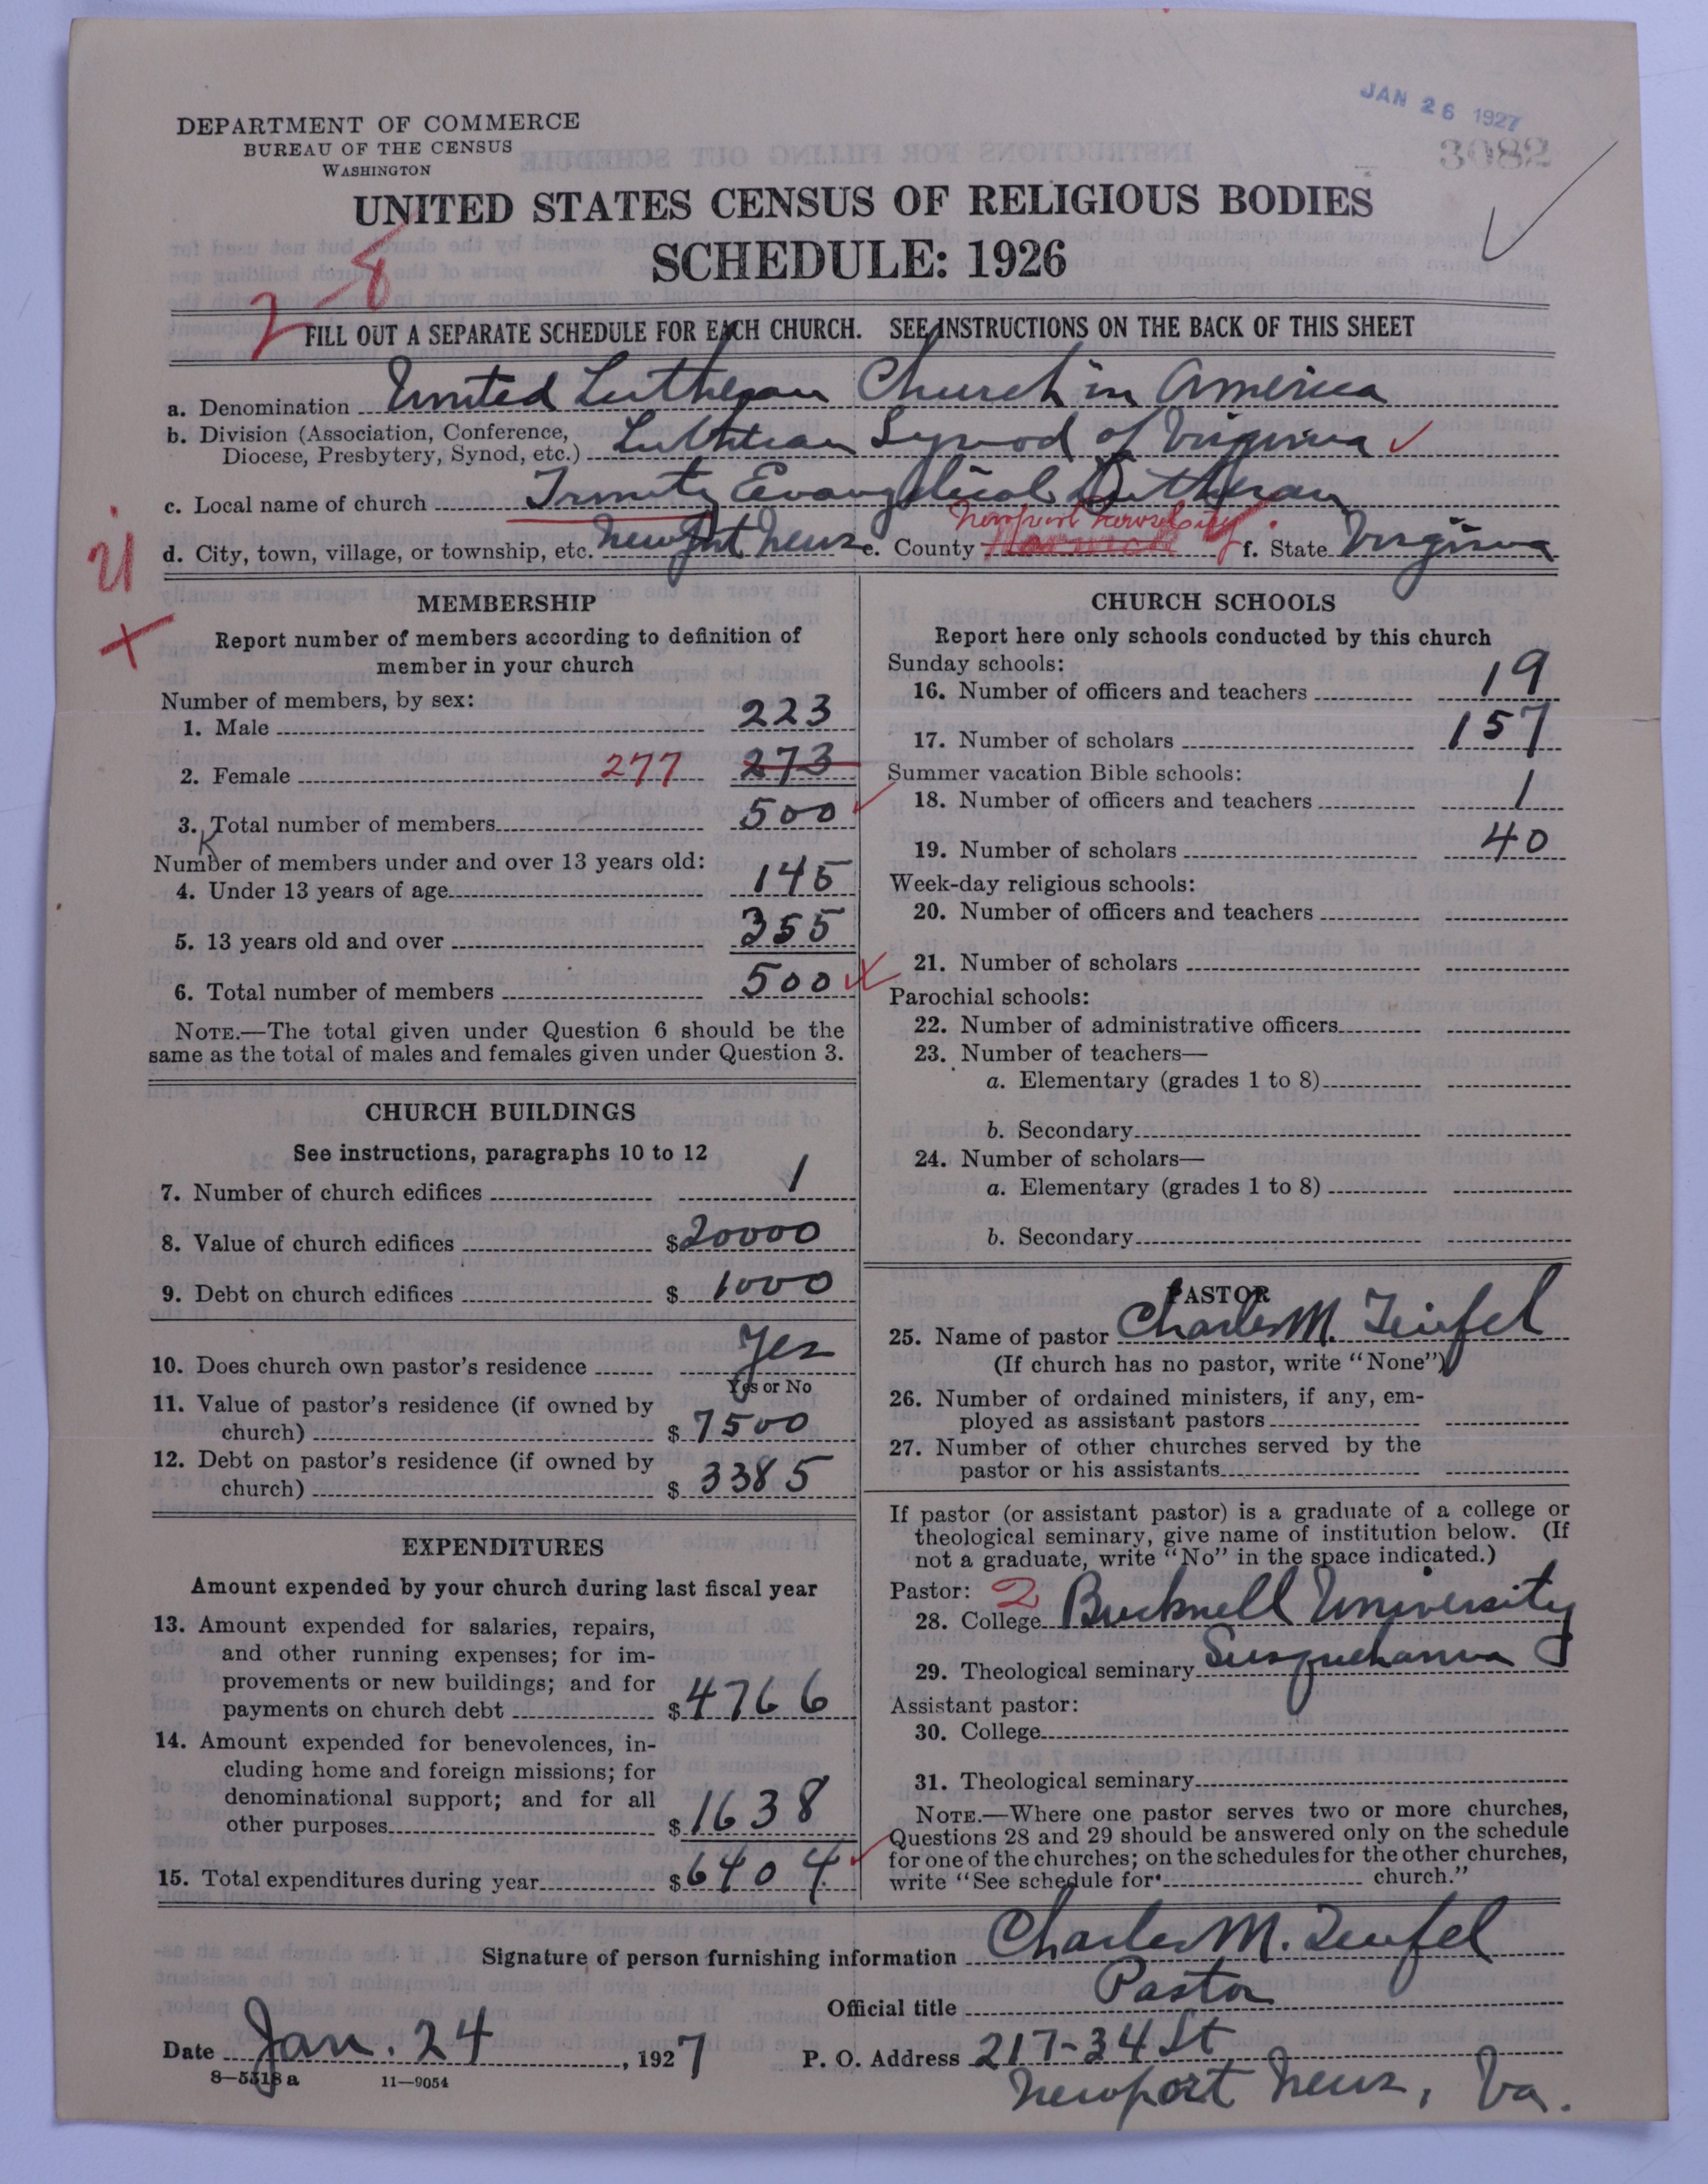 JAN 26 1927
3082
DEPARTMENT OF COMMERCE
BUREAU OF THE CENSUS
WASHINGTON
UNITED STATES CENSUS OF RELIGIOUS BODIES
SCHEDULE: 1926
2-8
FILL OUT A SEPARATE SCHEDULE FOR EACH CHURCH. SEE INSTRUCTIONS ON THE BACK OF THIS SHEET
a. Denomination United Lutheran Church in America
b. Division (Association, Conference,
Diocese, Presbytery, Synod, etc.) Lutheran Synod of Virginia
c. Local name of church Trinity Evangelical Lutheran
Newport News City
d. City, town, village, or township, etc. Newport News e. County Warwick f. State Virginia
MEMBERSHIP
Report number of members according to definition of
member in your church
Number of members, by sex:
1. Male 223
2. Female 277 273
3. Total number of members 500
Number of members under and over 13 years old:
4. Under 13 years of age 145
5. 13 years old and over 355
6. Total number of members 500
NOTE.—The total given under Question 6 should be the
same as the total of males and females given under Question 3.
CHURCH BUILDINGS
See instructions, paragraphs 10 to 12
7. Number of church edifices 1
8. Value of church edifices $20000
9. Debt on church edifices $ 1000
10. Does church own pastor's residence Yes
Yes or No
11. Value of pastor's residence (if owned by
church) $ 7500
12. Debt on pastor's residence (if owned by
church) $ 3385
EXPENDITURES
Amount expended by your church during last fiscal year
13. Amount expended for salaries, repairs,
and other running expenses; for im-
provements or new buildings; and for
payments on church debt $4766
14. Amount expended for benevolences, in-
cluding home and foreign missions; for
denominational support; and for all
other purposes $1638
15. Total expenditures during year $6404
CHURCH SCHOOLS
Report here only schools conducted by this church
Sunday schools:
16. Number of officers and teachers 19
17. Number of scholars 157
Summer vacation Bible schools:
18. Number of officers and teachers 1
19. Number of scholars 40
Week-day religious schools:
20. Number of officers and teachers
21. Number of scholars
Parochial schools:
22. Number of administrative officers
23. Number of teachers—
a. Elementary (grades 1 to 8)
b. Secondary
24. Number of scholars—
a. Elementary (grades 1 to 8)
b. Secondary
PASTOR
25. Name of pastor Charles M. Teufel
(If church has no pastor, write "None")
26. Number of ordained ministers, if any, em-
ployed as assistant pastors
27. Number of other churches served by the
pastor or his assistants
If pastor (or assistant pastor) is a graduate of a college or
theological seminary, give name of institution below. (If
not a graduate, write "No" in the space indicated.)
Pastor: 2
28. College Bucknell University
29. Theological seminary Susquehanna
Assistant pastor:
30. College
31. Theological seminary
NOTE.—Where one pastor serves two or more churches,
Questions 28 and 29 should be answered only on the schedule
for one of the churches; on the schedules for the other churches,
write "See schedule for church."
Signature of person furnishing information Charles M. Teufel
Official title Pastor
Date Jan. 24, 1927
P. O. Address 217-34 St
Newport News, Va.
8—5518a 11—9054